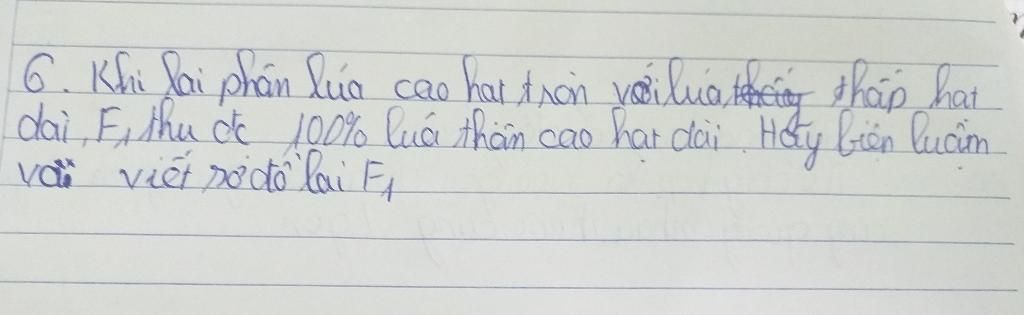 6. Khi lai phân lúa cao hạt tròn với lúa thấp hạt
dài, F₁ thu đc 100% luá thân cao hạt dài. Hãy biện luậm
và viết sơ đồ lai F₁